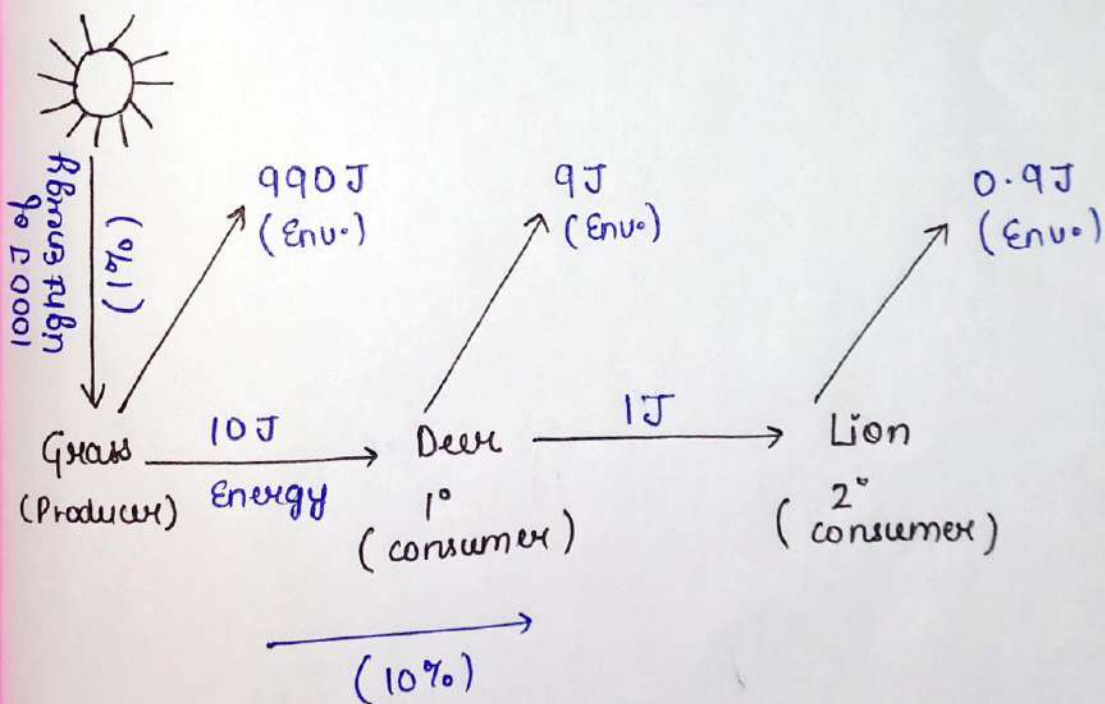 1000J of
light energy
(1%)
990J
(Env.)
9J
(Env.)
0.9J
(Env.)
Grass
(Producer)
10J
Energy
Deer
1°
(consumer)
1J
Lion
2°
(consumer)
(10%)